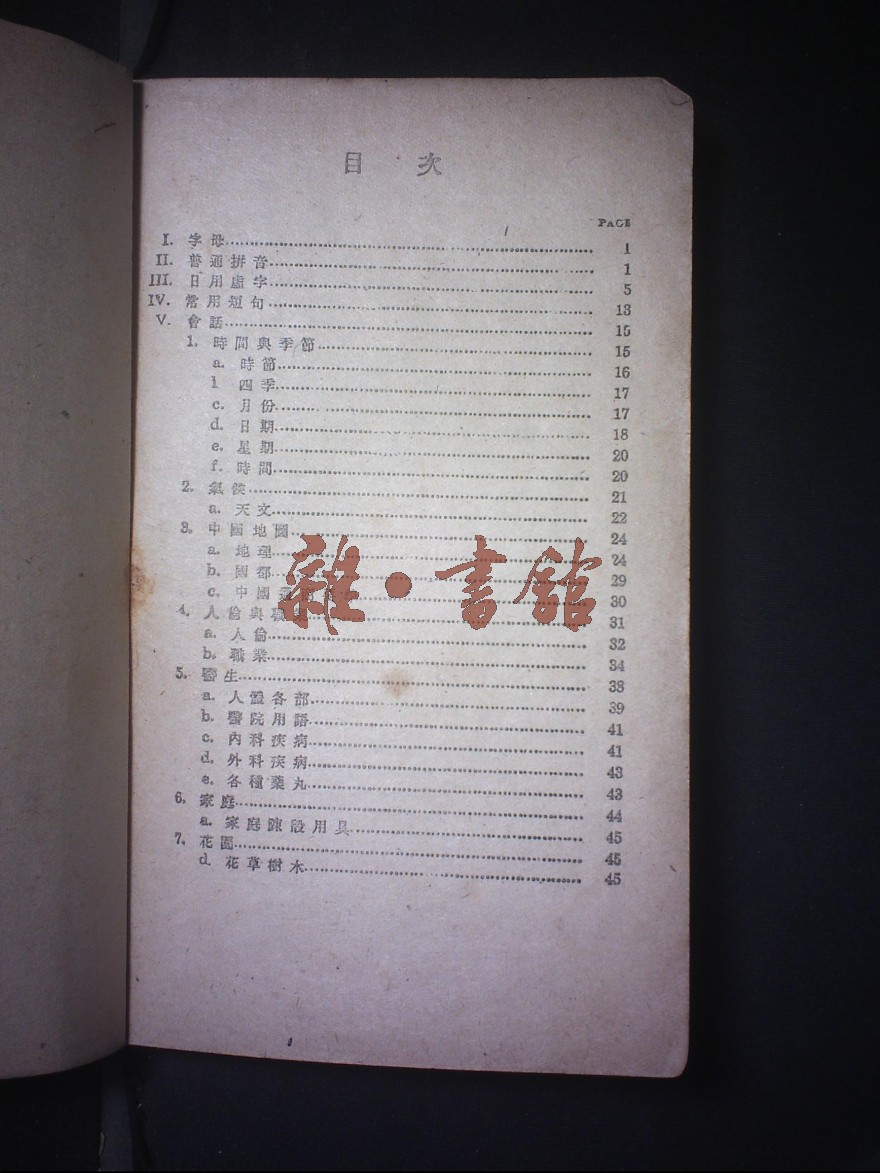 目 次
PAGE
I. 字母 1
II. 普通拼音 1
III. 日用虛字 5
IV. 常用短句 13
V. 會話 15
1. 時間與季節 15
a. 時節 16
l 四季 17
c. 月份 17
d. 日期 18
e. 星期 20
f. 時間 20
2. 氣候 21
a. 天文 22
3. 中國地圖 24
a. 地理 24
b. 國都 29
c. 中國通 30
4. 人倫與職業 31
a. 人倫 32
b. 職業 34
5. 醫生 38
a. 人體各部 39
b. 醫院用語 41
c. 內科疾病 41
d. 外科疾病 43
e. 各種藥丸 43
6. 家庭 44
a. 家庭陳設用具 45
7. 花園 45
d. 花草樹木 45
雜·書館